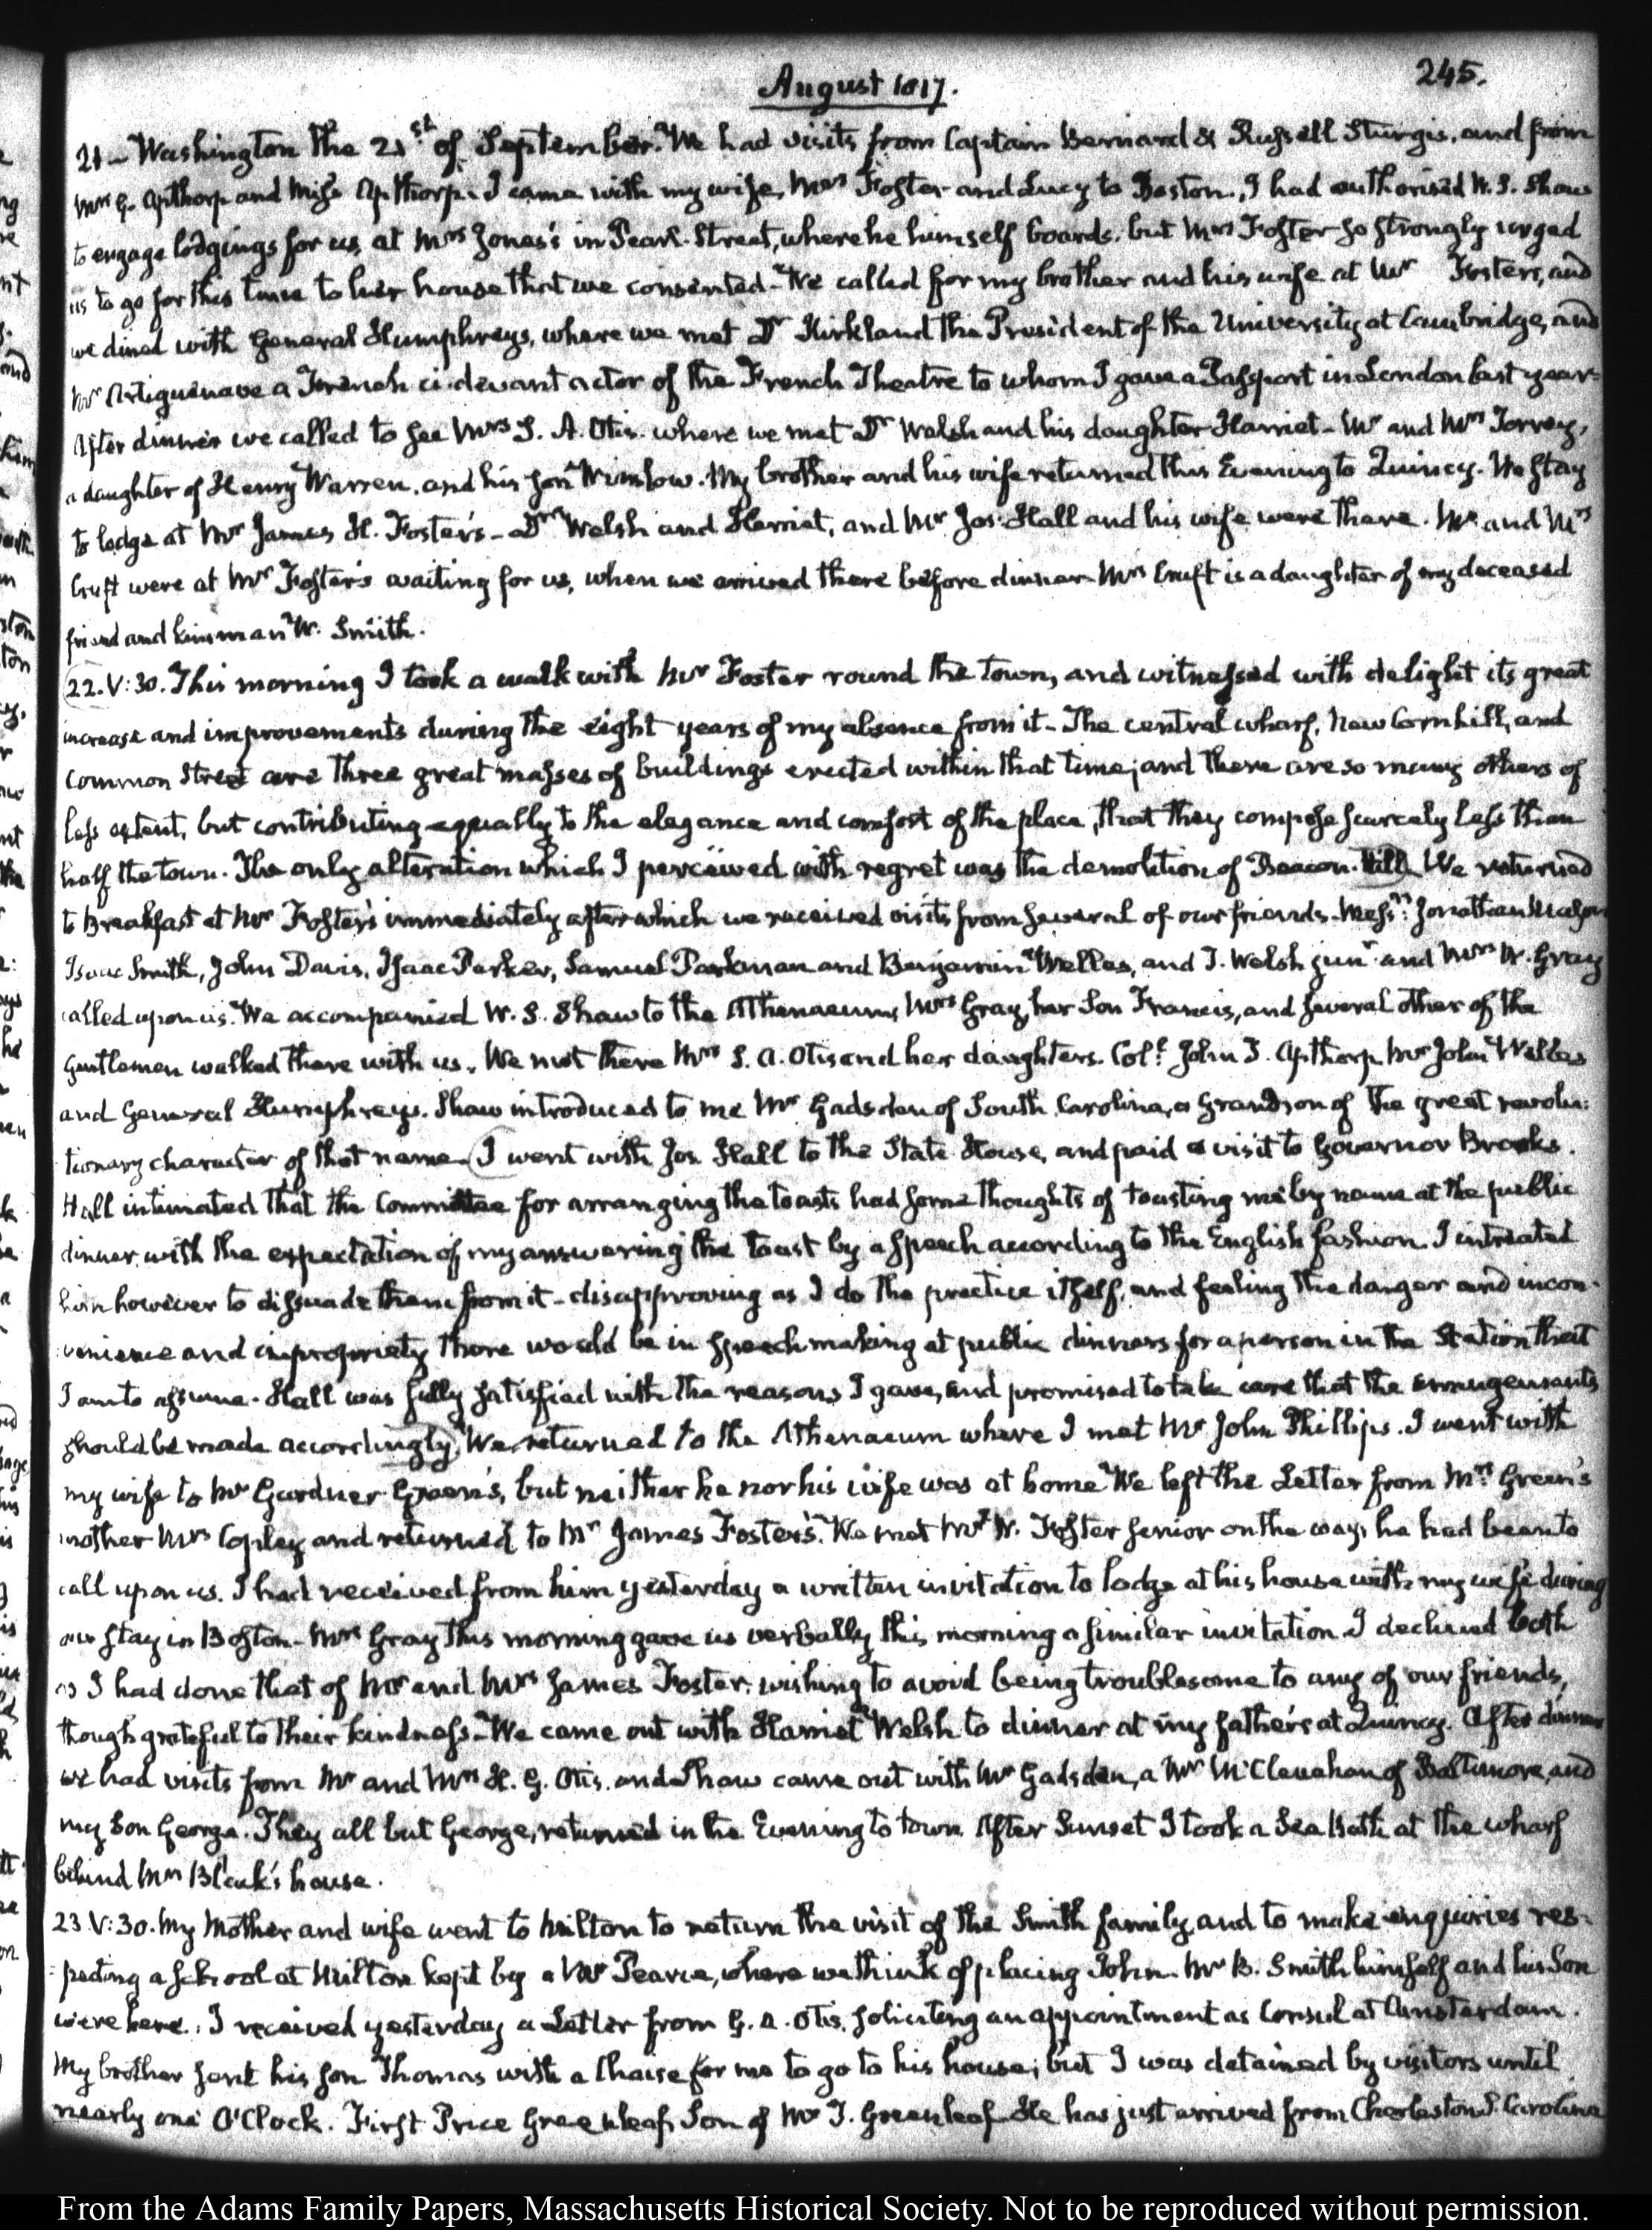 245.
August 1817.
21 – Washington the 21st of September. We had visits from Captain Bernard & Russell Sturgis, and from
Mrs G. Apthorp and Miss Apthorp. I came with my wife, Mrs Foster and Lucy to Boston. I had authorised W. S. Shaw
to engage lodgings for us, at Mrs Jones's in Pearl-Street, where he himself boards. but Mrs Foster so strongly urged
us to go for this time to her house that we consented – We called for my brother and his wife at Mr Foster's, and
we dined with General Humphreys, where we met Dr Kirkland the President of the University at Cambridge, and
Mr Artiguenave a French ci-devant actor of the French Theatre to whom I gave a Passport in London last year –
After dinner we called to see Mrs S. A. Otis. where we met Dr Welsh and his daughter Harriet – Mr and Mrs Torrey,
a daughter of Henry Warren, and his son Winslow. My brother and his wife returned this Evening to Quincy. We stay
to lodge at Mr James H. Foster's – Dr Welsh and Harriet, and Mr Jos. Hall and his wife were there. Mr and Mrs
Cruft were at Mr Foster's waiting for us, when we arrived there before dinner – Mrs Cruft is a daughter of my deceased
friend and kinsman W. Smith.
22. V:30. This morning I took a walk with Mr Foster round the town, and witnessed with delight its great
increase and improvements during the eight years of my absence from it – The central wharf, New Cornhill, and
Common Street are three great masses of buildings erected within that time; and there are so many others of
less extent, but contributing equally to the elegance and comfort of the place, that they compose scarcely less than
half the town. The only alteration which I perceived with regret was the demolition of Beacon-Hill. We returned
to Breakfast at Mr Foster's immediately after which we received visits from several of our friends – Messrs: Jonathan Mason
Isaac Smith, John Davis, Isaac Parker, Samuel Parkman and Benjamin Welles, and T. Welsh junr and Mrs W. Gray
called upon us. We accompanied W. S. Shaw to the Athenaeum, Mrs Gray, her Son Francis, and several other of the
gentlemen walked there with us. We met there Mrs S. A. Otis and her daughters. Coll John T. Apthorp Mr John Welles
and General Humphreys. Shaw introduced to me Mr Gadsden of South Carolina, a Grandson of the great revolu:
tionary character of that name – I went with Jos. Hall to the State House, and paid a visit to Governor Brooks.
Hall intimated that the Committee for arranging the toasts had some thoughts of toasting me by name at the public
dinner, with the expectation of my answering the toast by a speech according to the English fashion. I intreated
him however to dissuade them from it – disapproving as I do the practice itself, and feeling the danger and incon-
venience and impropriety there would be in speechmaking at public dinners for a person in the Station that
I am to assume. Hall was fully satisfied with the reasons I gave, and promised to take care that the arrangements
should be made accordingly. We returned to the Athenaeum where I met Mr John Phillips. I went with
my wife to Mr Gardner Green's, but neither he nor his wife was at home. We left the Letter from Mrs Green's
mother Mrs Copley and returned to Mr James Foster's. We met Mr W. Foster senior on the way, he had been to
call upon us. I had received from him yesterday a written invitation to lodge at his house with my wife during
our stay in Boston – Mrs Gray this morning gave us verbally this morning a similar invitation. I declined both
as I had done that of Mr and Mrs James Foster. wishing to avoid being troublesome to any of our friends,
though grateful to their kindness – We came out with Harriet Welsh to dinner at my father's at Quincy. After dinner
we had visits from Mr and Mrs H. G. Otis. and Shaw came out with Mr Gadsden, a Mr McClenahan of Baltimore, and
my Son George. They all but George, returned in the Evening to town. After Sunset I took a Sea Bath at the wharf
behind Mrs Black's house.
23. V:30. My Mother and wife went to Milton to return the visit of the Smith family, and to make enquiries res-
:pecting a school at Milton kept by a Mr Pearce, where we think of placing John. Mr B. Smith himself and his Son
were here. I received yesterday a Letter from G. A. Otis. soliciting an appointment as Consul at Amsterdam.
My brother sent his son Thomas with a Chaise for me to go to his house; but I was detained by visitors until
nearly one O'Clock. First Price Greenleaf, Son of Mr T. Greenleaf. He has just arrived from Charleston S. Carolina
From the Adams Family Papers, Massachusetts Historical Society. Not to be reproduced without permission.